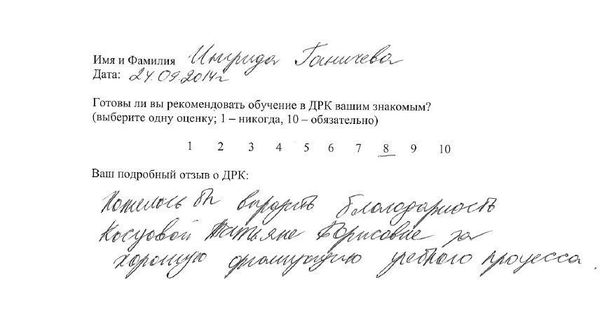 Имя и Фамилия Ингрида Ганичева
Дата: 24.09.2014г
Готовы ли вы рекомендовать обучение в ДРК вашим знакомым?
(выберите одну оценку; 1 – никогда, 10 – обязательно)
1 2 3 4 5 6 7 8 9 10
Ваш подробный отзыв о ДРК:
Хотелось бы выразить благодарность
Косовой Татьяне Борисовне за
хорошую организацию учебного процесса.